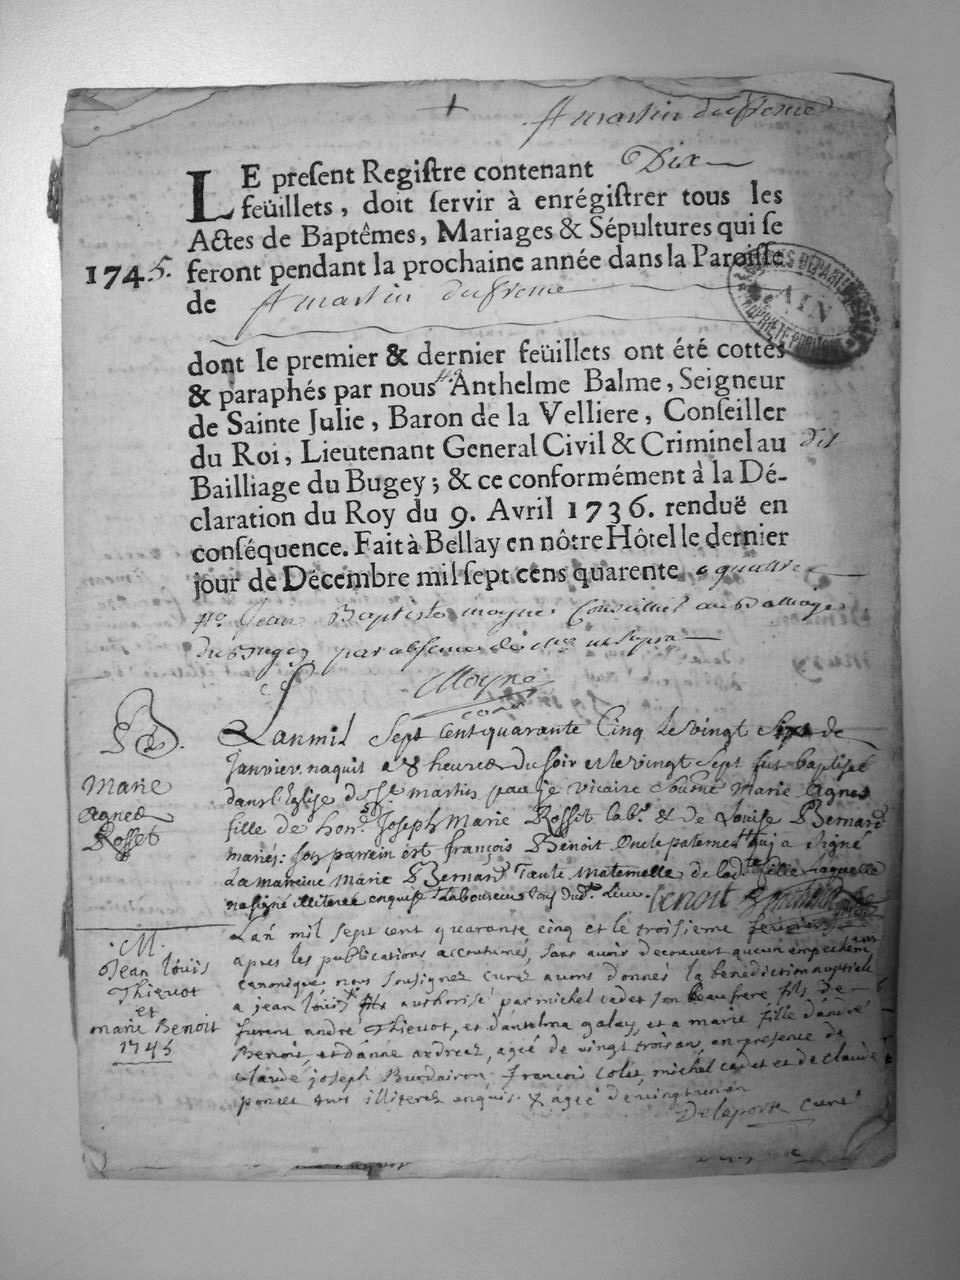 St martin du fresne
LE preſent Regiſtre contenant Dix
feüillets, doit ſervir à enrégiſtrer tous les
Actes de Baptêmes, Mariages & Sépultures qui ſe
1745. feront pendant la prochaine année dans la Paroiſſe
de St martin du fresne
AIN
dont le premier & dernier feüillets ont été cottés
& paraphés par nous Anthelme Balme, Seigneur
de Sainte Julie, Baron de la Velliere, Conſeiller
du Roi, Lieutenant General Civil & Criminel au dit
Bailliage du Bugey; & ce conformément à la Dé-
claration du Roy du 9. Avril 1736. renduë en
conſéquence. Fait à Bellay en nôtre Hôtel le dernier
jour de Décembre mil ſept cens quarente quattre
Jean Baptiste moyne Conseiller au Balliage
du Bugey par absence ut supra
Moyne
B
Marie
Agnes
Rosset
Lan mil Sept Cent quarante Cinq le vingt Six de
Janvier naquit a 8 heures du soir et le vingt sept fut baptisee
dans l'Eglise de St martin par je vicaire Marie Agnes
fille de hon. Joseph Marie Rosset lab. et de Louise Bernard
mariés: son parrein est françois Benoit Oncle paternel qui a signé
La marreine Marie Bernard Tante Maternelle de lad.te fille laquelle
na signé illiteree enquise Laboureurs tous dud. Lieu. benoit
M.
Jean Loüis
Thievot
et
marie Benoit
1745
Lan mil sept cent quarante cinq et le troisieme fevrier
apres les publications accoutumés, sans avoir decouvert aucun empechement
canonique nous soussignez curez avons donnés la benediction nuptiale
a jean loüis authorisé par michel cadet son beaufrere fils de
furent andré Thievot, et d'antelma galay, et a marie fille d'andré
Benoit et d'anne andrez, agée de vingt trois ans, en presence de
claude joseph Burdairon françois Colet, michel cadet et de claude
poncet tous illiterez enquis & agéé de vingt un an
Delaporte curé